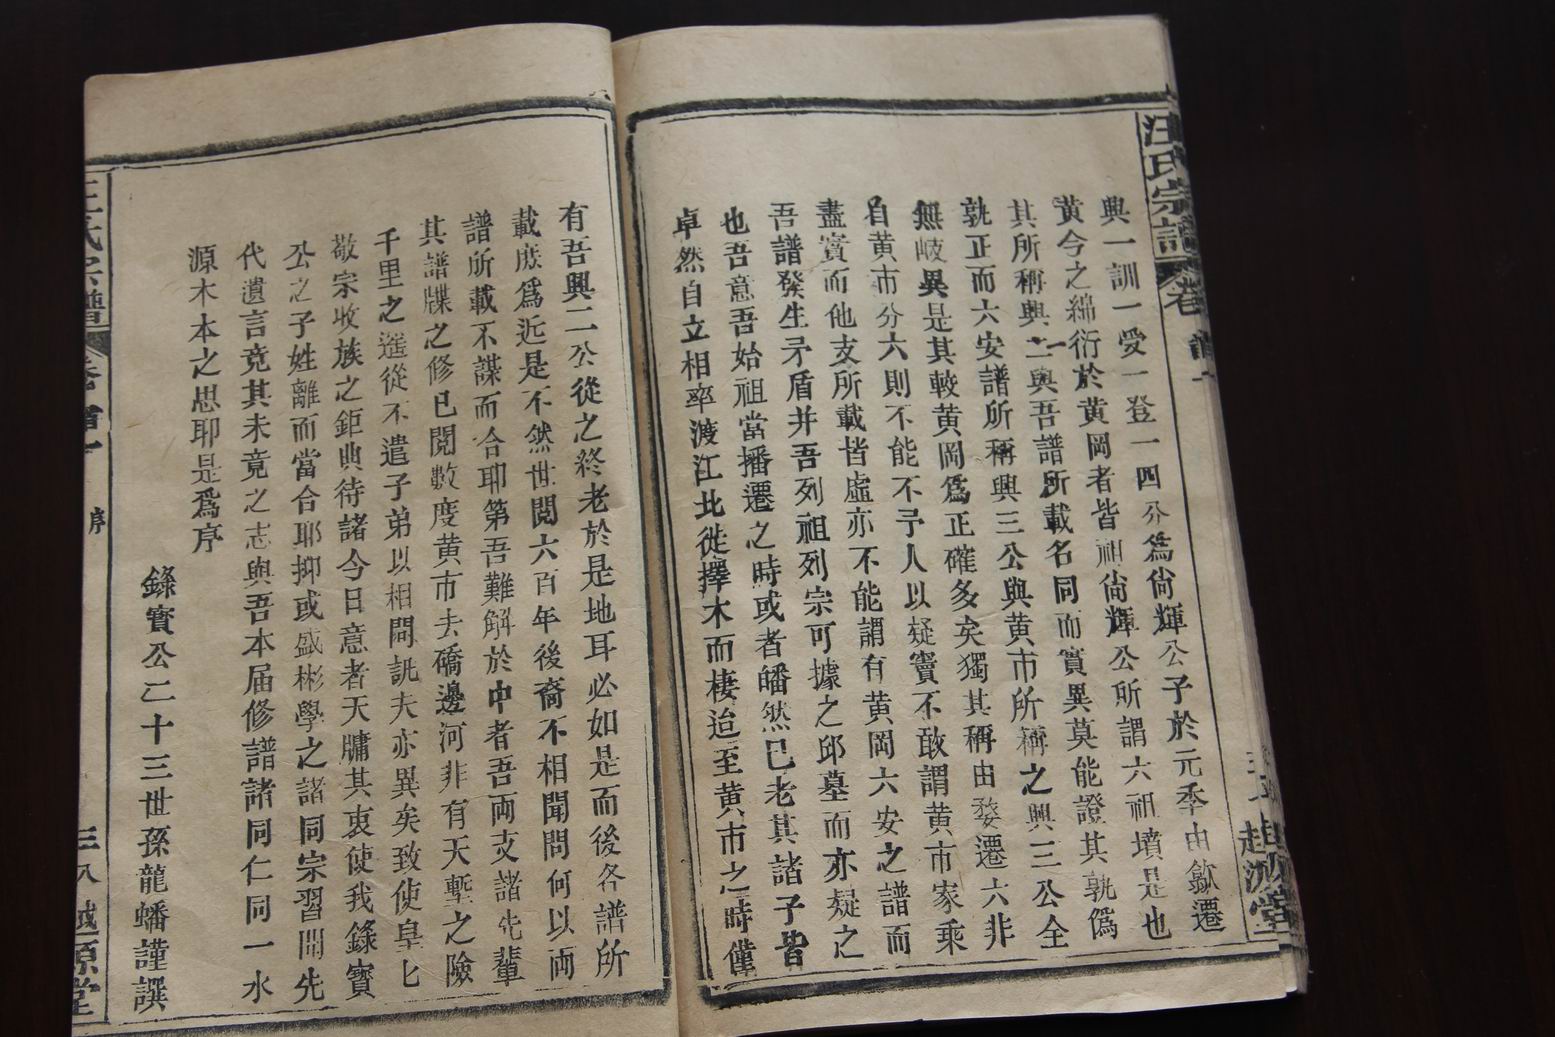 汪氏宗譜
卷
首一
越源堂
興一訓一受一登一四分爲尙輝公子於元季由歙遷
黃今之綿衍於黃岡者皆祖尙輝公所謂六祖墳是也
其所稱興二與吾譜所載名同而實異莫能證其孰僞
孰正而六安譜所稱興三公與黃市所稱之興三公全
無岐異是其較黃岡爲正確多矣獨其稱由婺遷六非
自黃市分六則不能不予人以疑竇不敢謂黃市家乘
盡實而他支所載皆虛亦不能謂有黃岡六安之譜而
吾譜發生矛盾并吾列祖列宗可據之邱墓而亦疑之
也吾意吾始祖當播遷之時或者皤然已老其諸子皆
卓然自立相率渡江北徙擇木而棲迨至黃市之時僅
有吾興二公從之終老於是地耳必如是而後各譜所
載庶爲近是不然世閱六百年後裔不相聞問何以兩
譜所載不謀而合耶第吾難解於中者吾兩支諸先輩
其譜牒之修已閱數度黃市去礄邊河非有天塹之險
千里之遙從不遣子弟以相問訊夫亦異矣致使皇七
敬宗收族之鉅典待諸今日意者天牗其衷使我錄寶
公之子姓離而當合耶抑或盛彬學之諸同宗習聞先
代遺言竟其未竟之志與吾本届修譜諸同仁同一水
源木本之思耶是爲序
錄寶公二十三世孫龍蟠謹譔
汪氏宗譜
卷首一
序
三八
越源堂